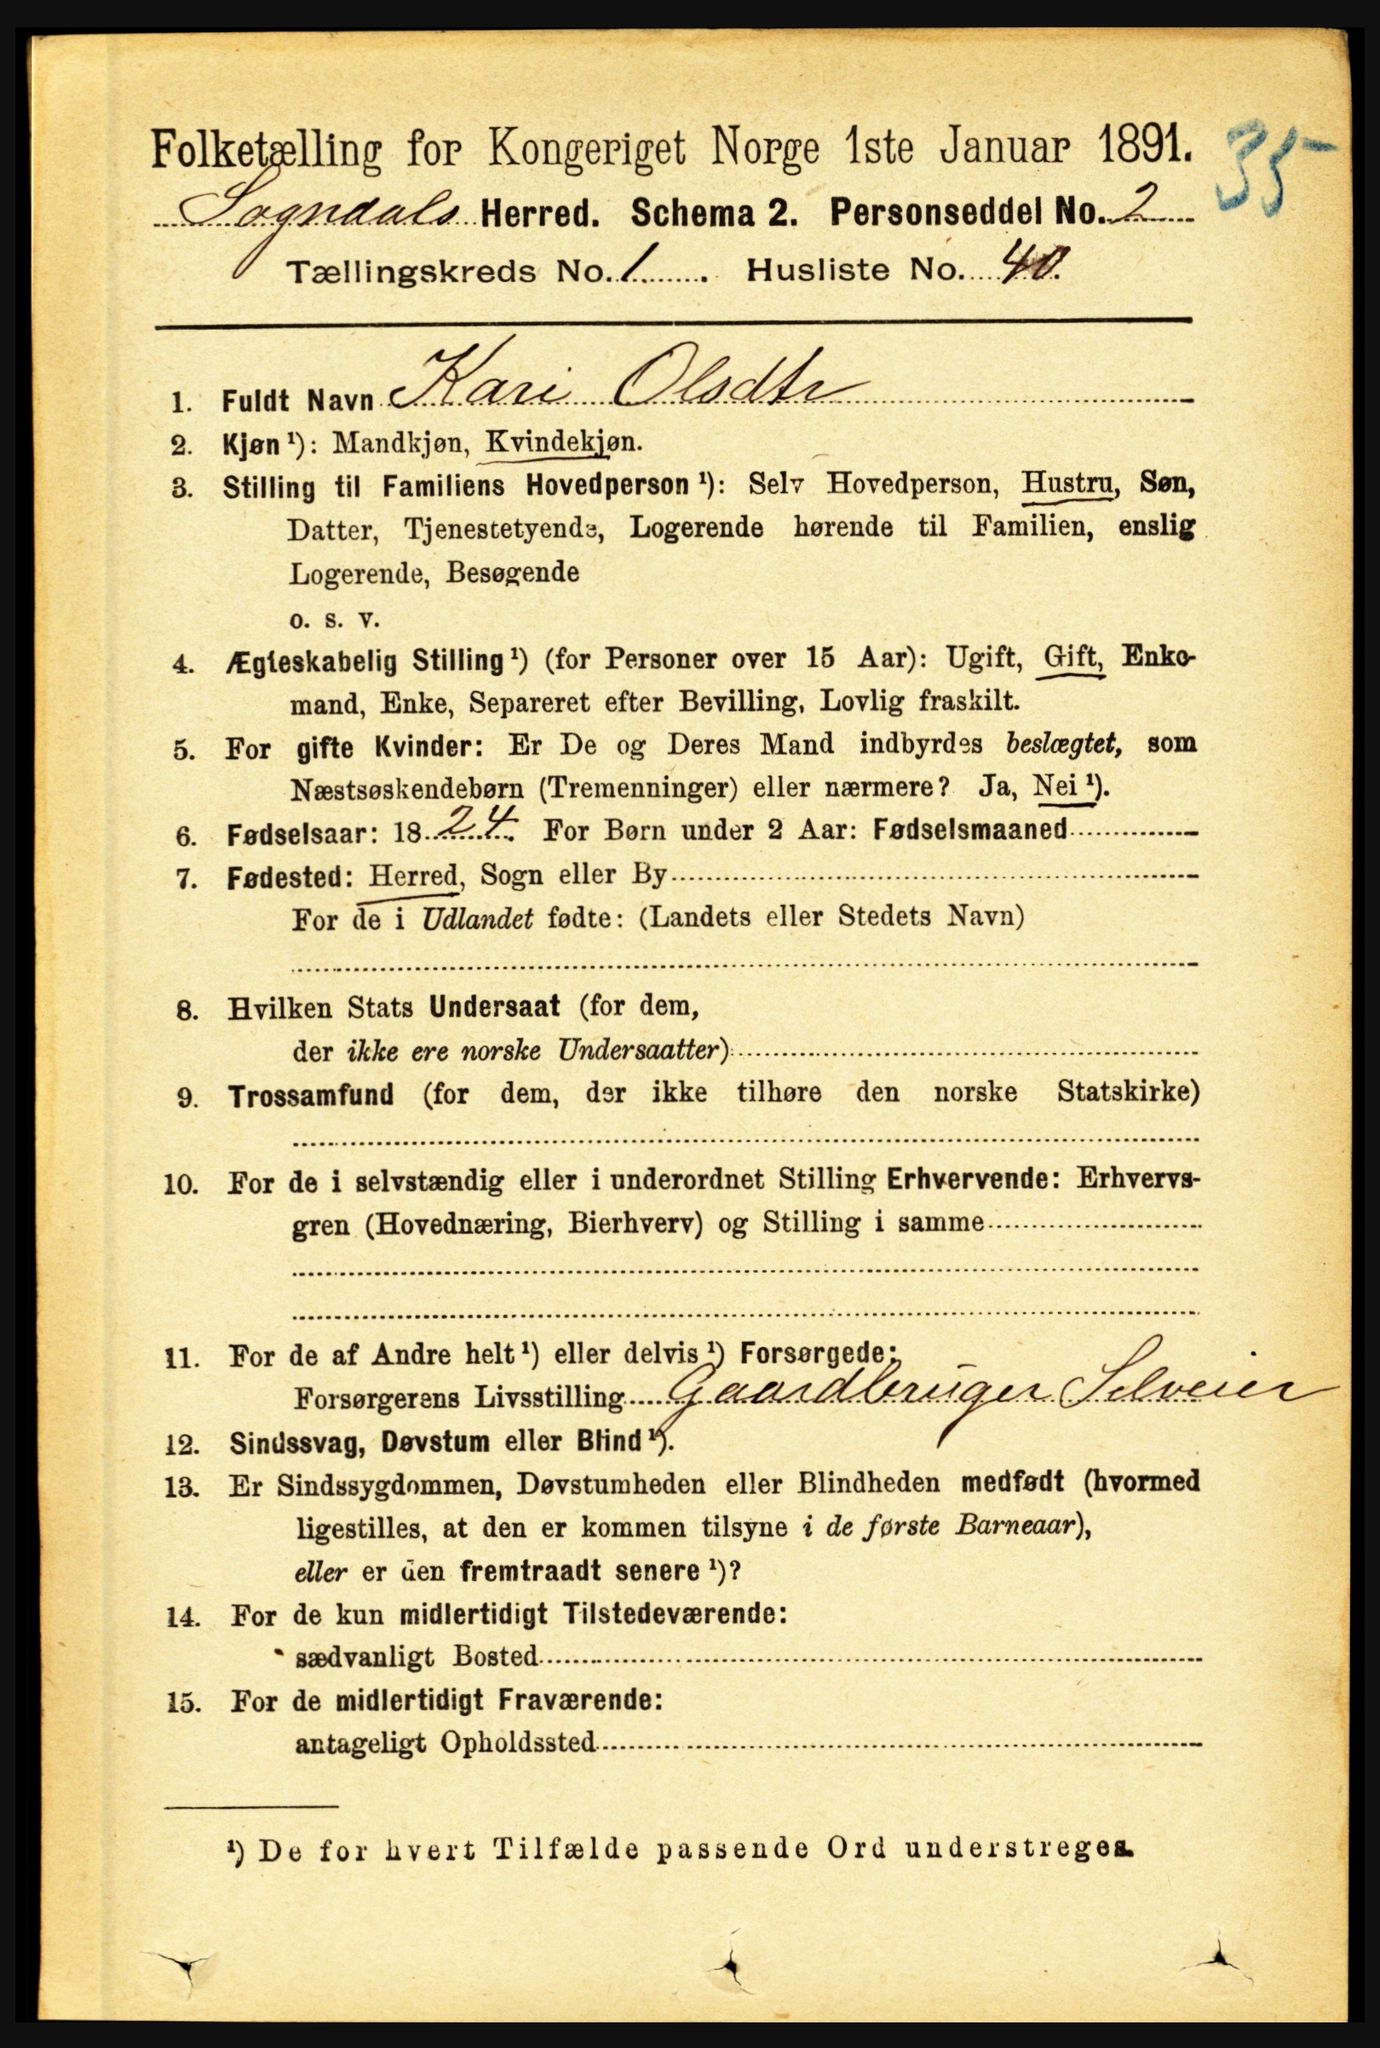 Folketælling for Kongeriget Norge 1ste Januar 1891.
35
Sogndals Herred. Schema 2. Personseddel No. 2
Tællingskreds No. 1. Husliste No. 40.
1. Fuldt Navn Kari Olsdtr
2. Kjøn ¹): Mandkjøn, Kvindekjøn.
3. Stilling til Familiens Hovedperson ¹): Selv Hovedperson, Hustru, Søn,
Datter, Tjenestetyende, Logerende hørende til Familien, enslig
Logerende, Besøgende
o. s. v.
4. Ægteskabelig Stilling ¹) (for Personer over 15 Aar): Ugift, Gift, Enke-
mand, Enke, Separeret efter Bevilling, Lovlig fraskilt.
5. For gifte Kvinder: Er De og Deres Mand indbyrdes beslægtet, som
Næstsøskendebørn (Tremenninger) eller nærmere? Ja, Nei ¹).
6. Fødselsaar: 1824. For Børn under 2 Aar: Fødselsmaaned
7. Fødested: Herred, Sogn eller By
For de i Udlandet fødte: (Landets eller Stedets Navn)
8. Hvilken Stats Undersaat (for dem,
der ikke ere norske Undersaatter)
9. Trossamfund (for dem, der ikke tilhøre den norske Statskirke)
10. For de i selvstændig eller i underordnet Stilling Erhvervende: Erhvervs-
gren (Hovednæring, Bierhverv) og Stilling i samme
11. For de af Andre helt ¹) eller delvis ¹) Forsørgede:
Forsørgerens Livsstilling Gaardbruger Selveier
12. Sindssvag, Døvstum eller Blind ¹).
13. Er Sindssygdommen, Døvstumheden eller Blindheden medfødt (hvormed
ligestilles, at den er kommen tilsyne i de første Barneaar),
eller er den fremtraadt senere ¹)?
14. For de kun midlertidigt Tilstedeværende:
sædvanligt Bosted
15. For de midlertidigt Fraværende:
antageligt Opholdssted
¹) De for hvert Tilfælde passende Ord understreges.